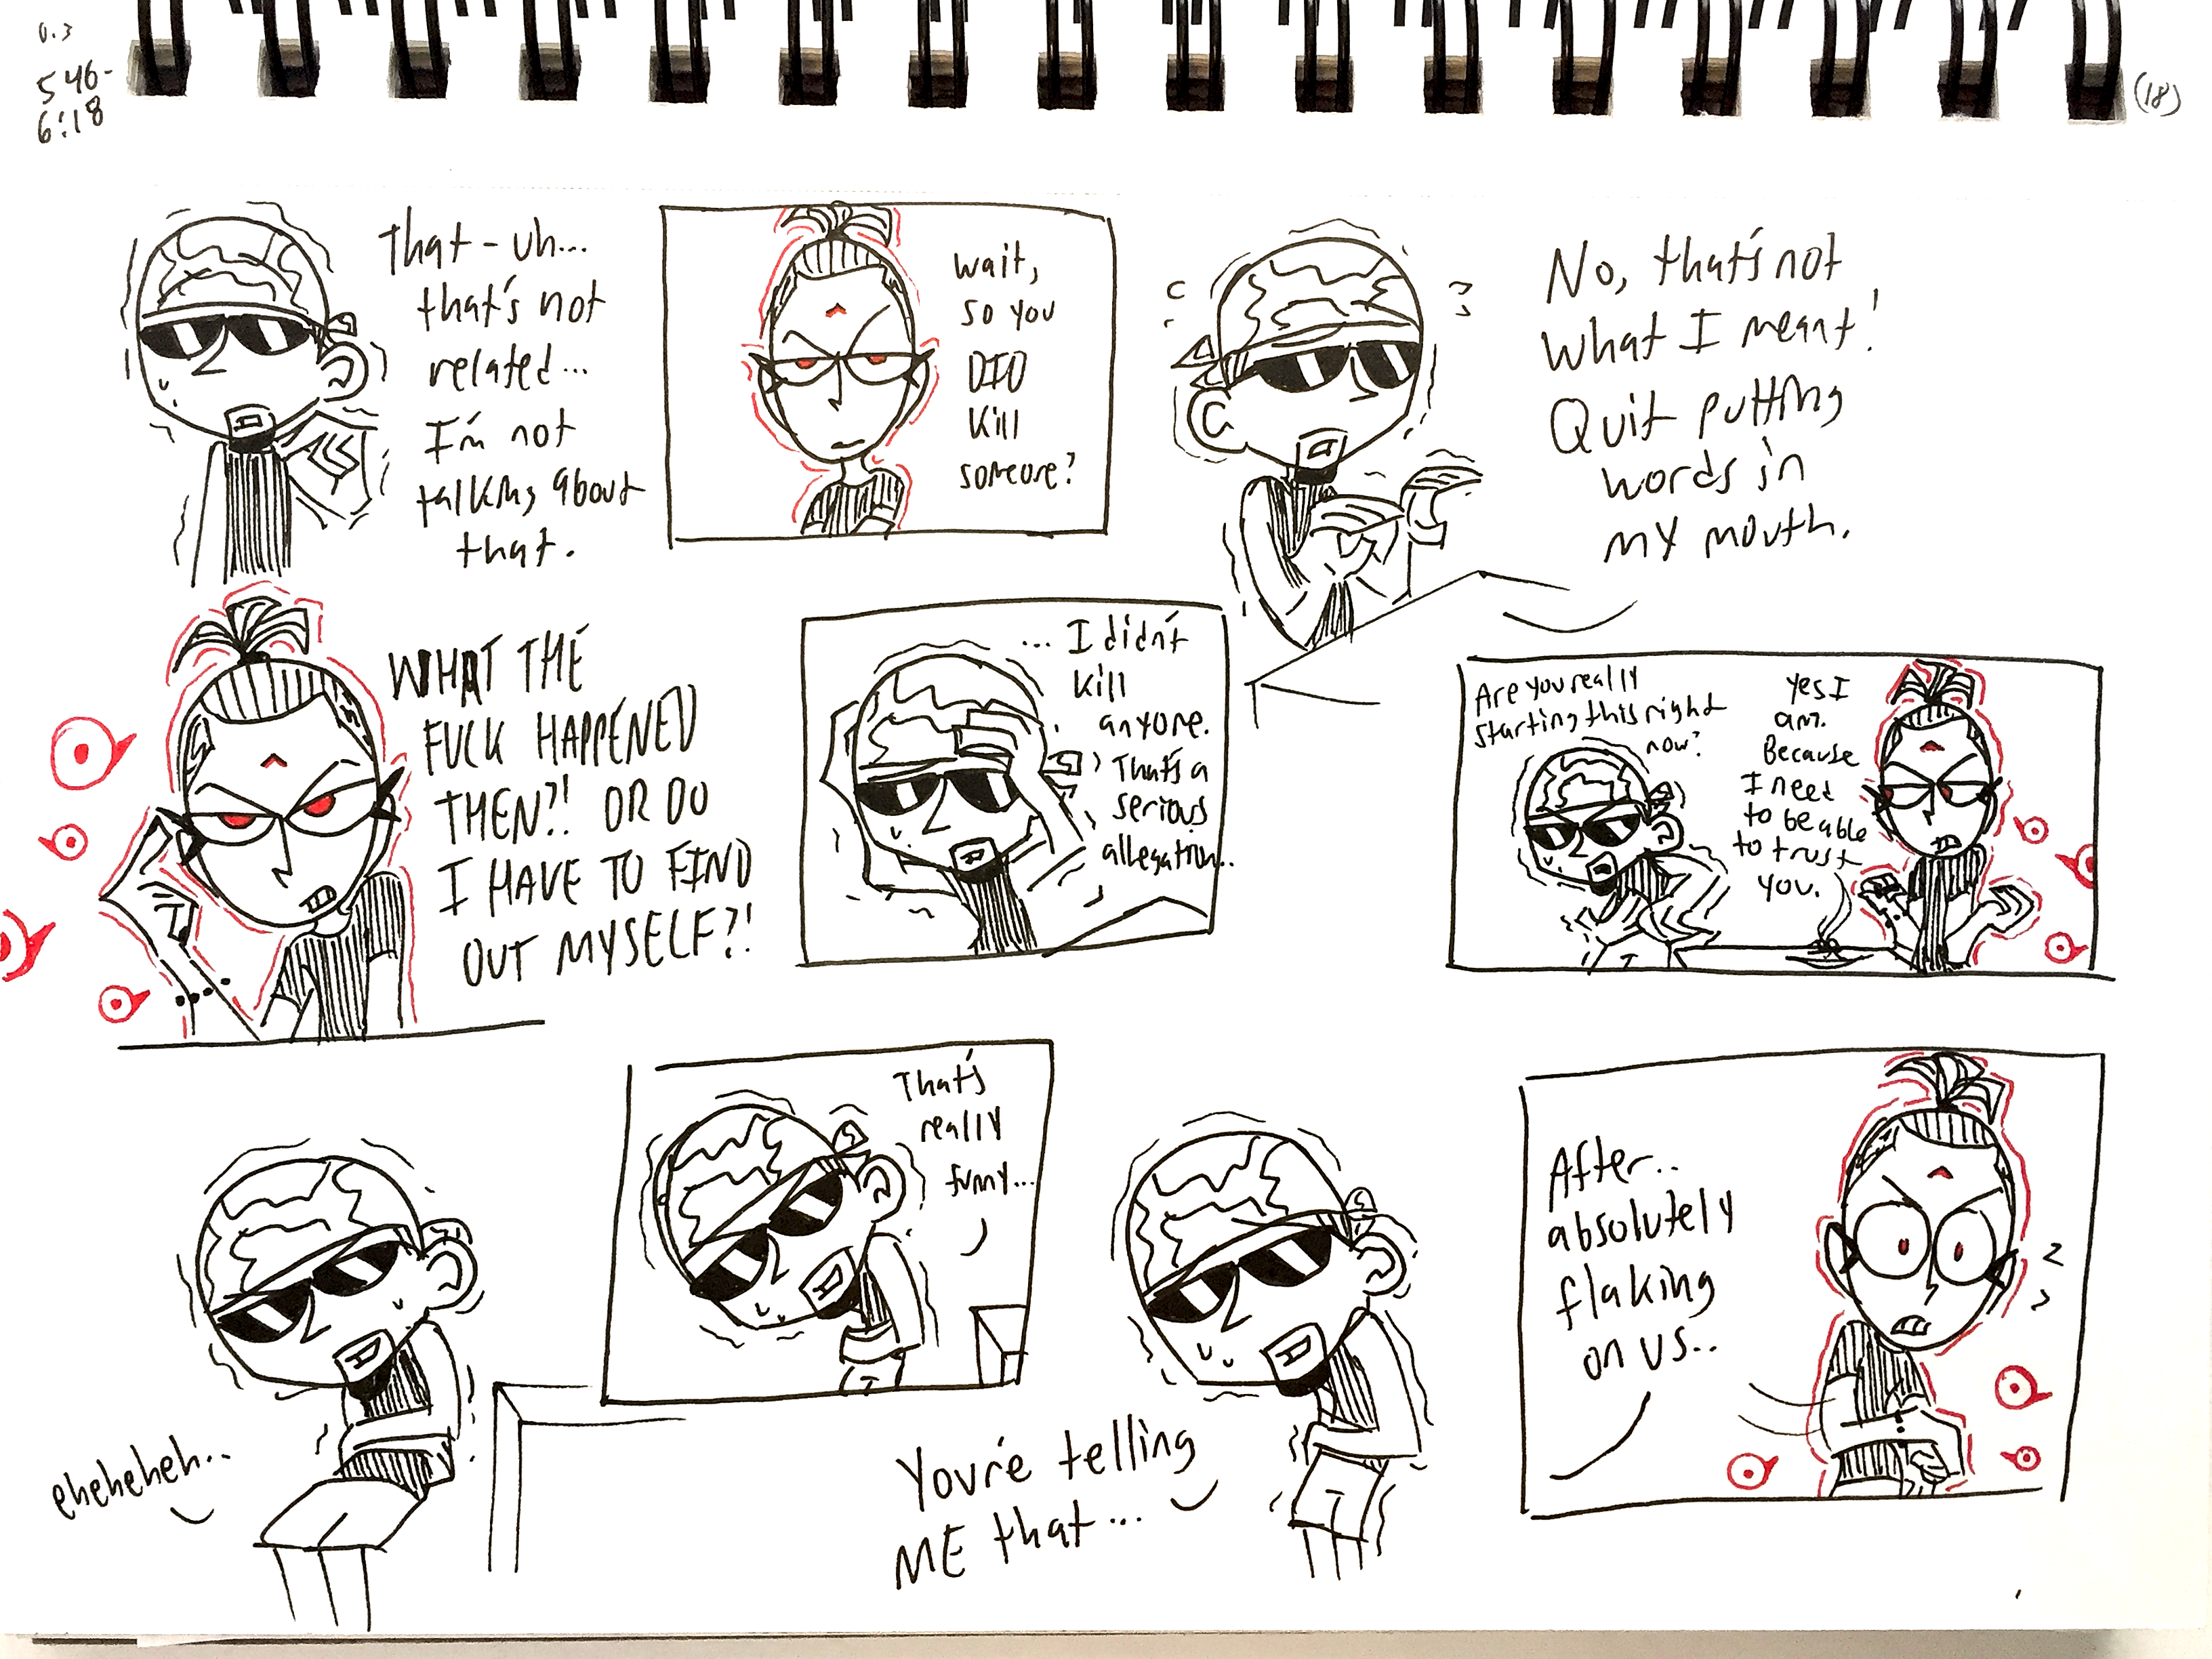 0.3
546-
6:18
(18)
That - uh...
that's not
related...
I'm not
talking about
that.
Wait,
so you
DID
kill
someone?
No, that's not
what I meant!
Quit putting
words in
my mouth.
WHAT THE
FUCK HAPPENED
THEN?! OR DO
I HAVE TO FIND
OUT MYSELF?!
... I didn't
kill
anyone.
That's a
serious
allegation..
Are you really
starting this right
now?
Yes I
am.
Because
I need
to be able
to trust
you.
eheheheh..
That's
really
funny...
You're telling
ME that...
After..
absolutely
flaking
on us..